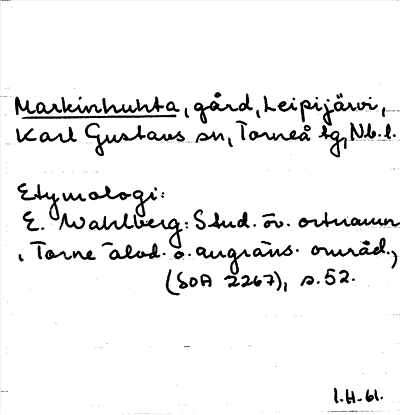 Markinhuhta, gård, Leipijärvi,
Karl Gustavs sn, Torneå tg, Nb. l.
Etymologi:
E. Wahlberg: Stud. öv. ortnamn
i Torne älvd. o. angräns. områd.,
(SOA 2267), s. 52.
I.H-61.